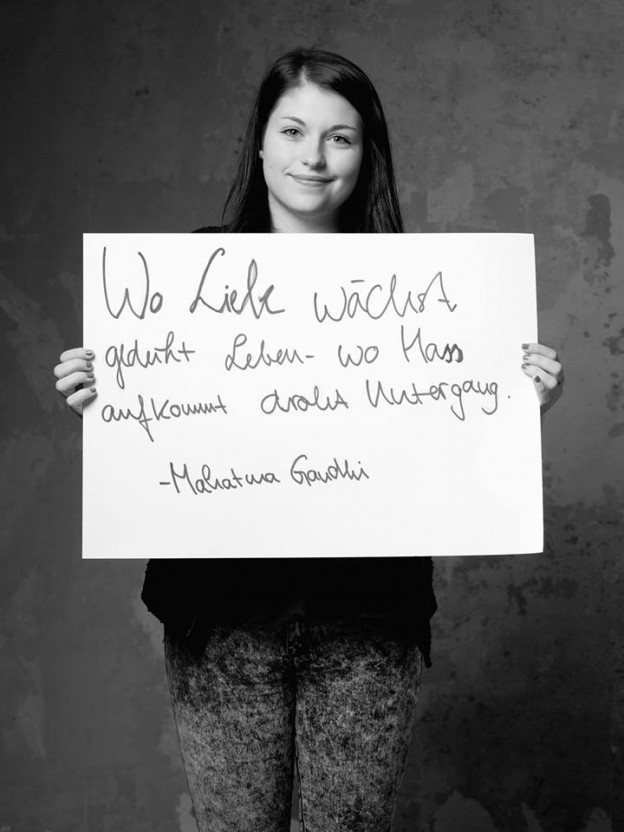 Wo Liebe wächst,
gedeiht Leben - wo Hass
aufkommt droht Untergang.
-Mahatma Gandhi